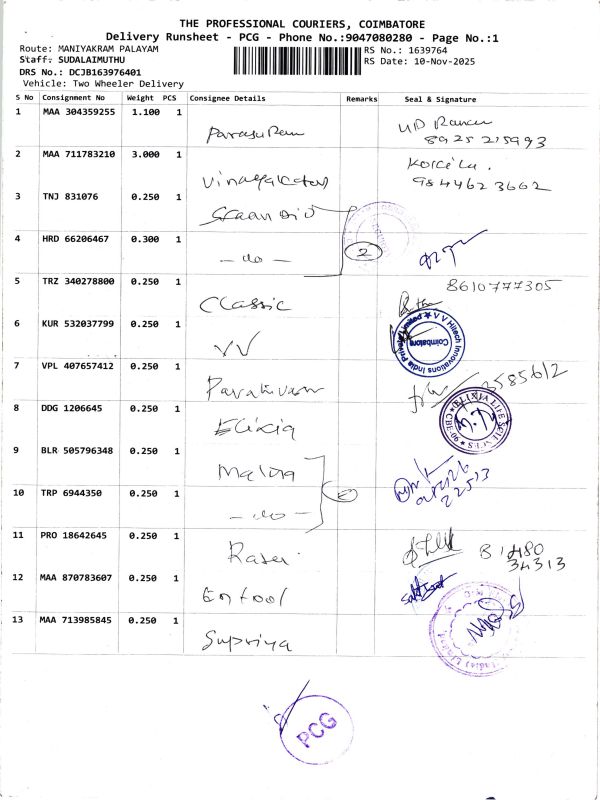 THE PROFESSIONAL COURIERS, COIMBATORE
Delivery Runsheet - PCG - Phone No.:9047080280 - Page No.:1
Route: MANIYAKRAM PALAYAM
RS No.: 1639764
Staff: SUDALAIMUTHU
RS Date: 10-Nov-2025
DRS No.: DCJB163976401
Vehicle: Two Wheeler Delivery
S No Consignment No Weight PCS Consignee Details Remarks Seal & Signature
1 MAA 304359255 1.100 1
8925215993
2 MAA 711783210 3.000 1
9844623662
3 TNJ 831076 0.250 1
4 HRD 66206467 0.300 1 - do - 2
5 TRZ 340278800 0.250 1 Classic 8610777305
6 KUR 532037799 0.250 1 VV
V V Hitech Innovations India Private Limited ★ Coimbatore
7 VPL 407657412 0.250 1
8 DDG 1206645 0.250 1
9 BLR 505796348 0.250 1
10 TRP 6944350 0.250 1 - do -
11 PRO 18642645 0.250 1
34313
12 MAA 870783607 0.250 1
13 MAA 713985845 0.250 1 Supriya
PCG